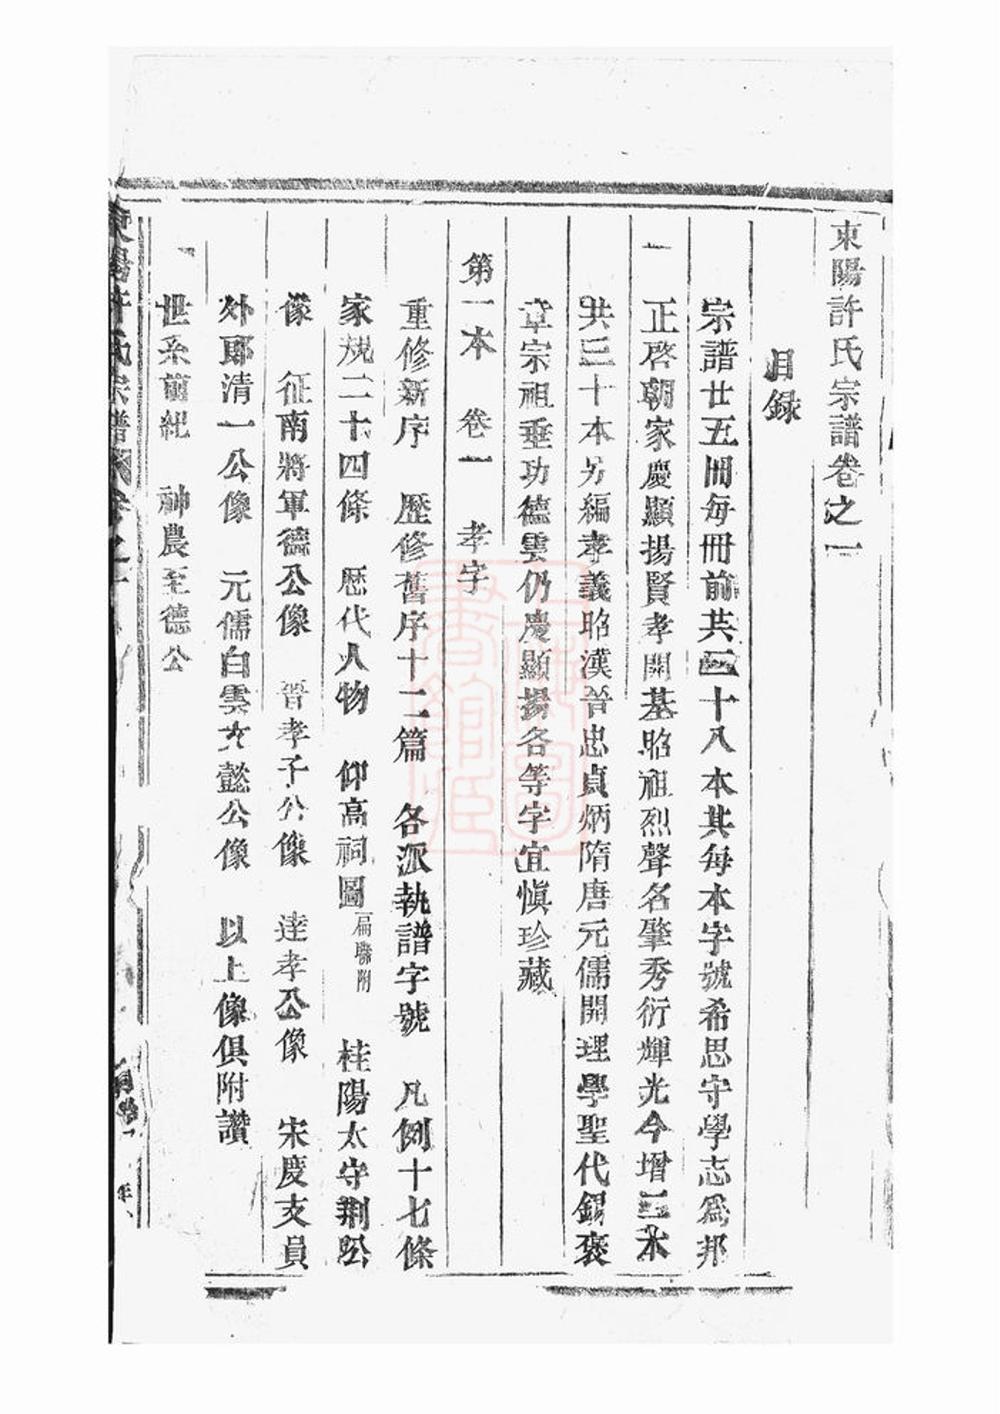 東陽許氏宗譜卷之一
目錄
宗譜廿五冊每冊前共二十八本其每本字號希思守學志爲邦
一
正啓朝家慶顯揚賢孝開基昭祖烈聲名肇秀衍輝光今增三本
共三十本另編孝義昭漢晉忠貞炳隋唐元儒開理學聖代錫褒
章宗祖垂功德雲仍慶顯揚各等字宜愼珍藏
第一本 卷一 孝字
重修新序 歷修舊序十二篇 各派執譜字號 凡例十七條
家規二十四條 歷代人物 仰高祠圖扁聯附 桂陽太守荆公
像 征南將軍德公像 晉孝子公像 達孝公像 宋度支員
外郎清一公像 元儒白雲文懿公像 以上像俱附讚
世系前紀 神農至德公
東陽許氏宗譜 卷之一